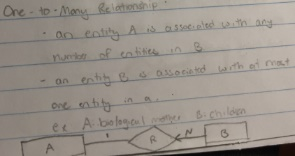 One-to-Many Relationship
- an entity A is associated with any
number of entities in B
- an entity B is associated with at most
one entity in A.
ex A: biological mother B: children
A 1 R N B